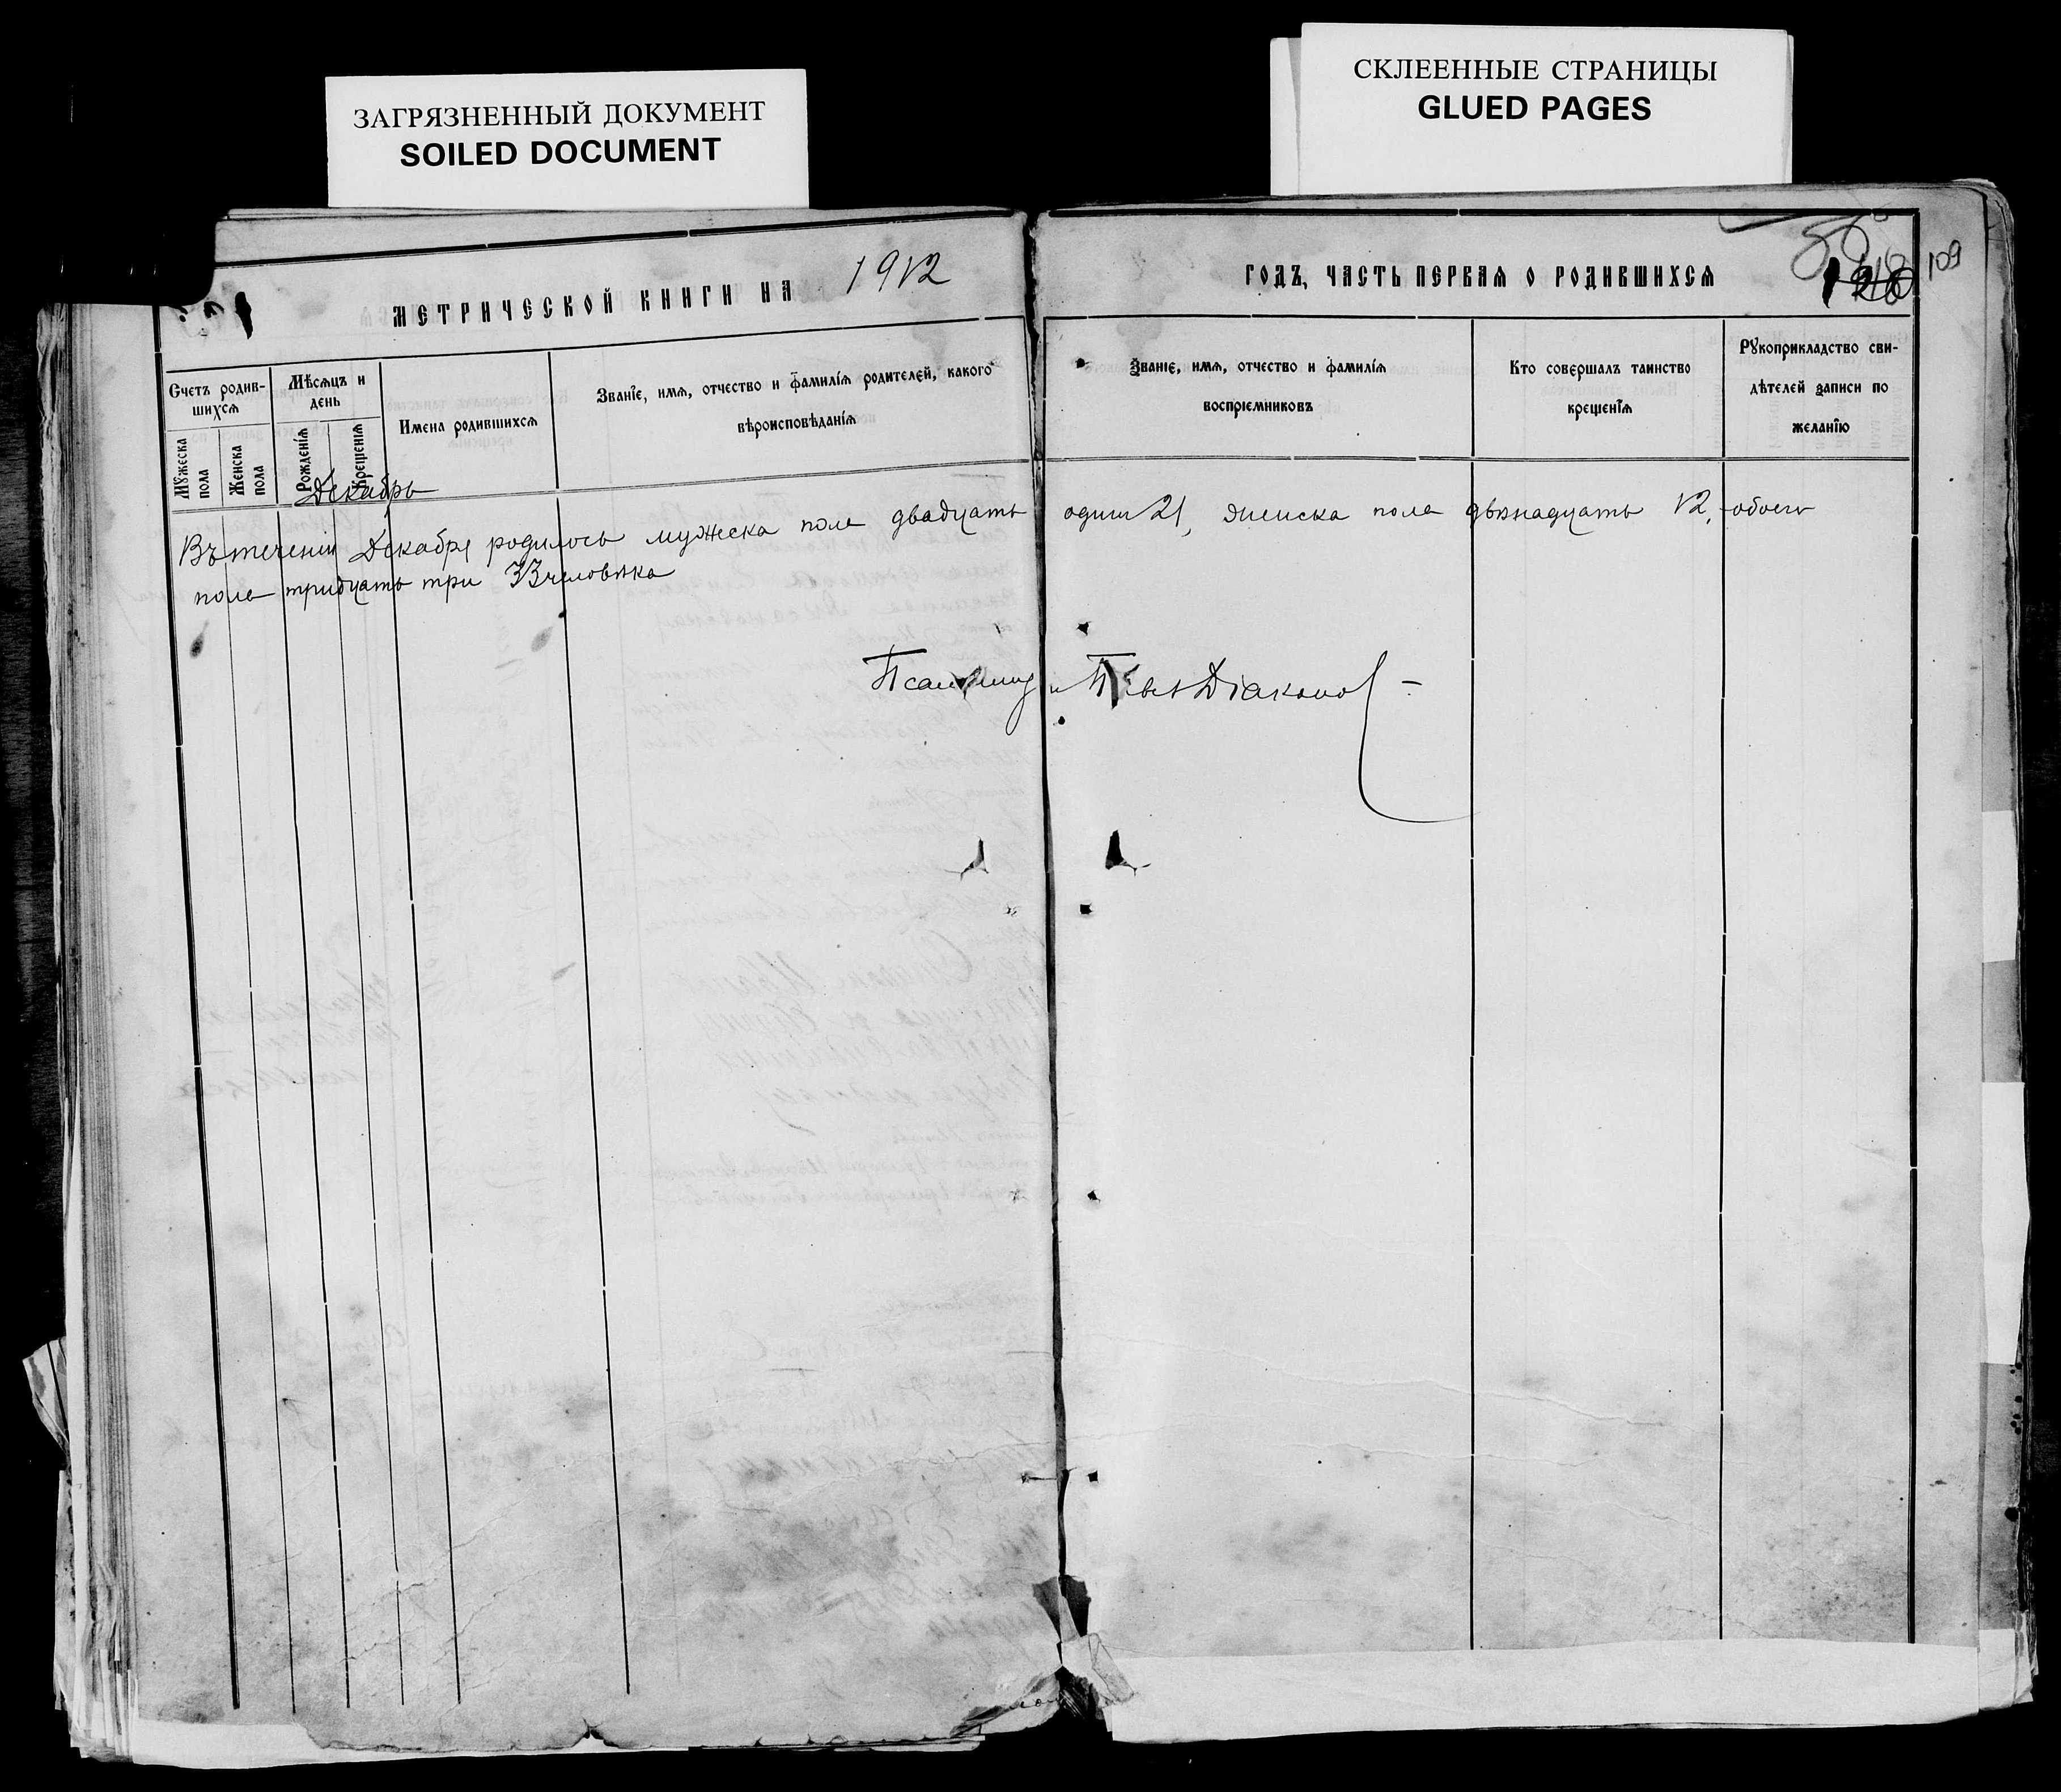 ЗАГРЯЗНЕННЫЙ ДОКУМЕНТ
SOILED DOCUMENT
СКЛЕЕННЫЕ СТРАНИЦЫ
GLUED PAGES
МЕТРИЧЕСКОЙ КНИГИ НА 1912
ГОДЪ, ЧАСТЬ ПЕРВАЯ О РОДИВШИХСЯ
109
Счетъ родив-
шихся
Мужеска
пола
Женска
пола
Мѣсяцъ и
день
Рожденія
Крещенія
Имена родившихся
Званіе, имя, отчество и фамилія родителей, какого
вѣроисповѣданія
Званіе, имя, отчество и фамилія
воспріемниковъ
Кто совершалъ таинство
крещенія
Рукоприкладство сви-
дѣтелей записи по
желанію
Декабрь
Въ теченіи Декабря родилось мужеска пола двадцать один 21, женска пола двѣнадцать 12, обоего
пола тридцать три 33 человѣка
Псаломщик Павел Діаконов